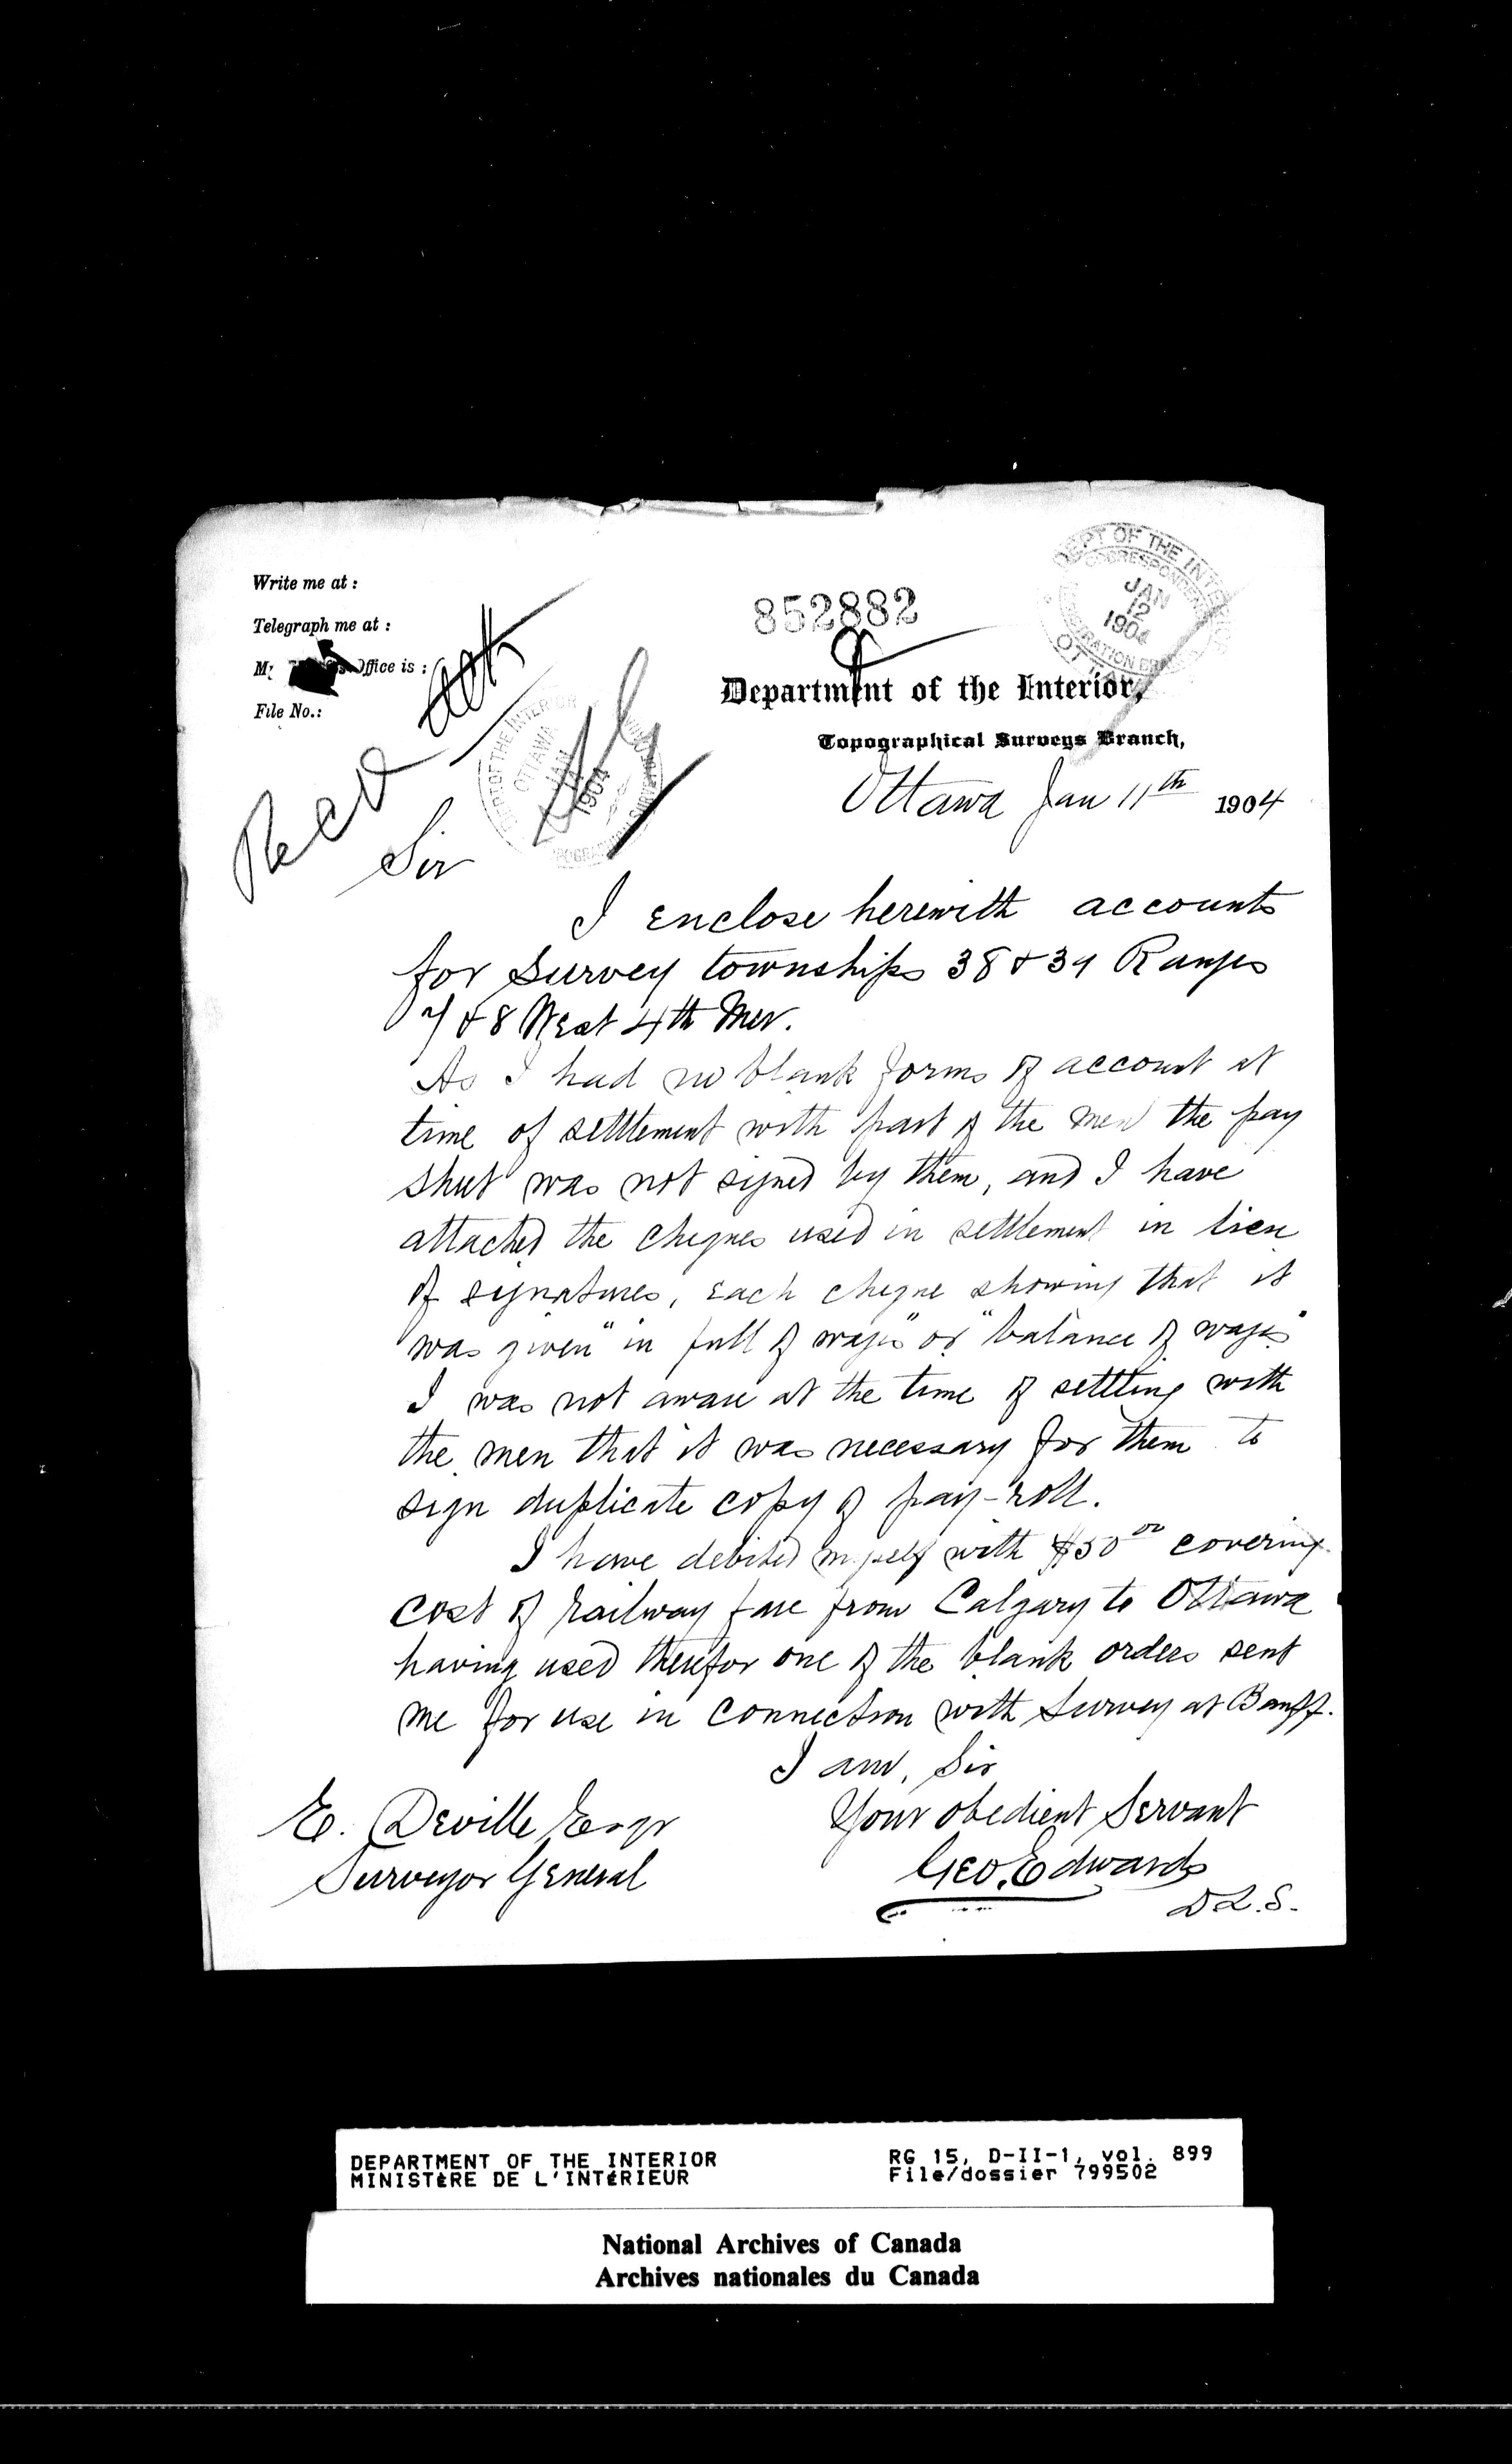 Write me at :
Telegraph me at :
Office is :
File No.:
Rec'd
852882
DEPT OF THE INTERIOR
CORRESPONDENCE
JAN
12
1904
REGISTRATION BRANCH
OTTAWA
Department of the Interior,
Topographical Surveys Branch,
DEPT OF THE INTERIOR
OTTAWA
JAN
1904
Ottawa Jan 11th 1904
Sir
I enclose herewith accounts
for Survey townships 38 & 39 Ranges
7 & 8 West 4th Mer.
As I had no blank forms of account at
time of settlement with part of the men the pay
sheet was not signed by them, and I have
attached the cheques used in settlement in lieu
of signatures, Each cheque showing that it
was given "in full of wages" or "balance of wages"
I was not aware at the time of settling with
the men that it was necessary for them to
sign duplicate copy of pay-roll.
I have debited myself with $50 00 covering
cost of railway fare from Calgary to Ottawa
having used therefor one of the blank orders sent
me for use in connection with Survey at Banff.
I am, Sir
Your obedient Servant
Geo. Edwards
D L.S.
E. Deville Esqr
Surveyor General
DEPARTMENT OF THE INTERIOR
MINISTÈRE DE L'INTÉRIEUR
RG 15, D-II-1, vol. 899
File/dossier 799502
National Archives of Canada
Archives nationales du Canada